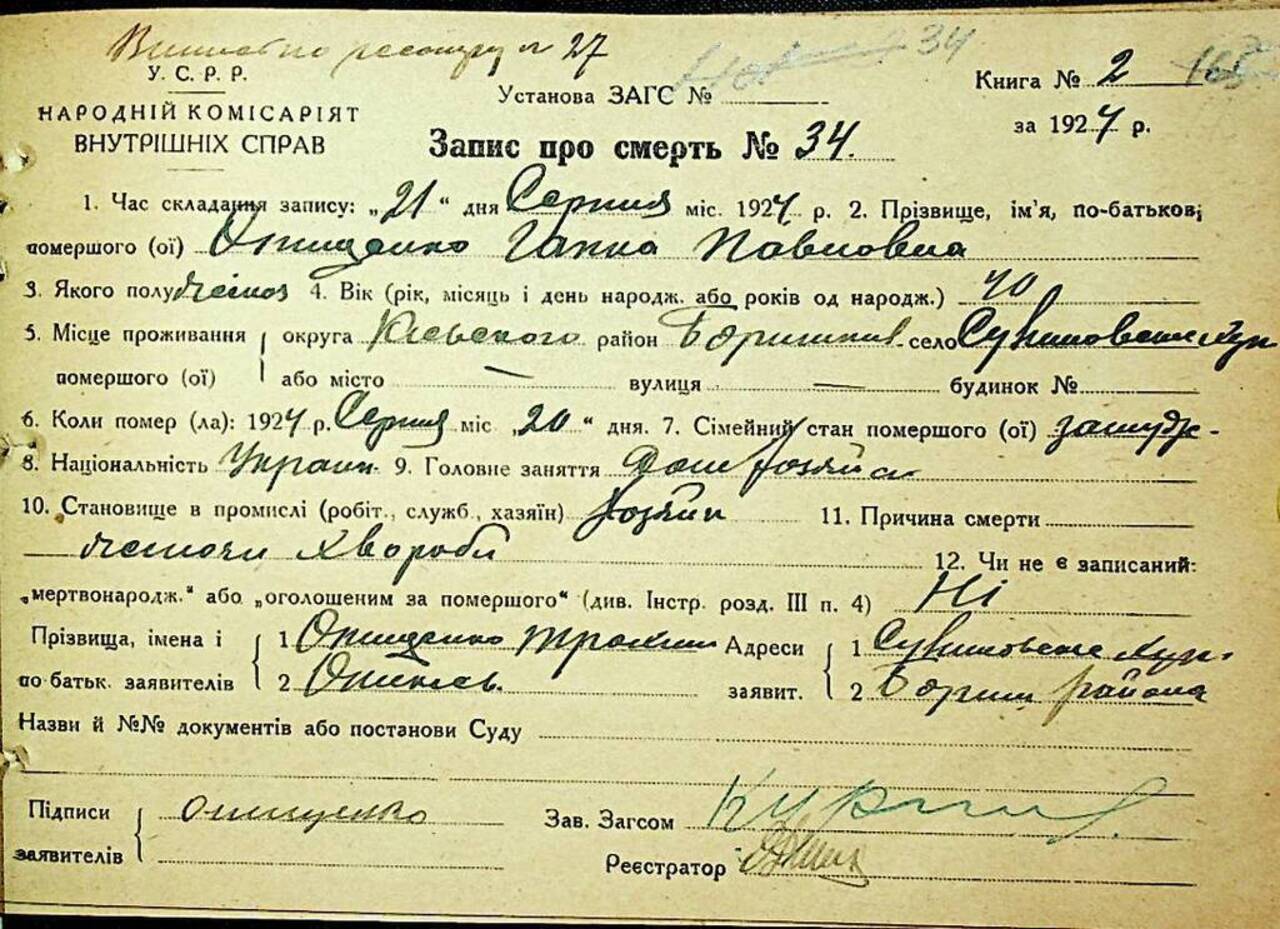 по реєстру № 27
34
У. С. Р. Р.
НАРОДНІЙ КОМІСАРІЯТ
ВНУТРІШНІХ СПРАВ
Установа ЗАГС №
Книга № 2
за 1924 р.
Запис про смерть № 34.
1. Час складання запису: „21“ дня Серпня міс. 1924 р. 2. Прізвище, ім'я, по-батькові
помершого (ої) Онищенко Ганна Павловна
3. Якого полу женск 4. Вік (рік, місяць і день народж. або років од народж.) 40
5. Місце проживання округа Киевского район Боришпил. село хут
помершого (ої) або місто — вулиця — будинок №
6. Коли помер (ла): 1924 р. Серпня міс „20“ дня. 7. Сімейний стан помершого (ої) замуж-
8. Національність Украин. 9. Головне заняття Дом хозяйка
10. Становище в промислі (робіт., служб., хазяїн) хозяин 11. Причина смерти
хвороби
12. Чи не є записаний:
„мертвонародж.“ або „оголошеним за помершого“ (див. Інстр. розд. III п. 4) Ні
Прізвища, імена і 1 Онищенко Трохим Адреси 1 хут.
по батьк. заявителів 2 заявит. 2 Борищ района
Назви й №№ документів або постанови Суду
Підписи Онищенко Зав. Загсом
заявителів Реєстратор